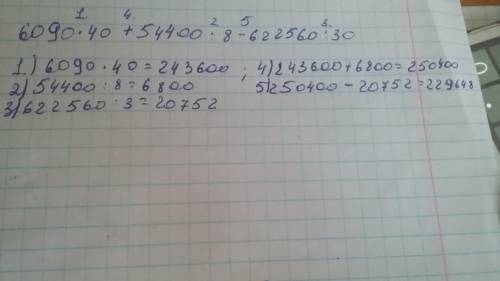 1. 4. 2 5 3.
6090·40 + 54400 : 8 - 622560 : 30
1) 6090·40 = 243600 ; 4) 243600 + 6800 = 250400
2) 54400 : 8 = 6800 5) 250400 - 20752 = 229648
3) 622560 : 3 = 20752